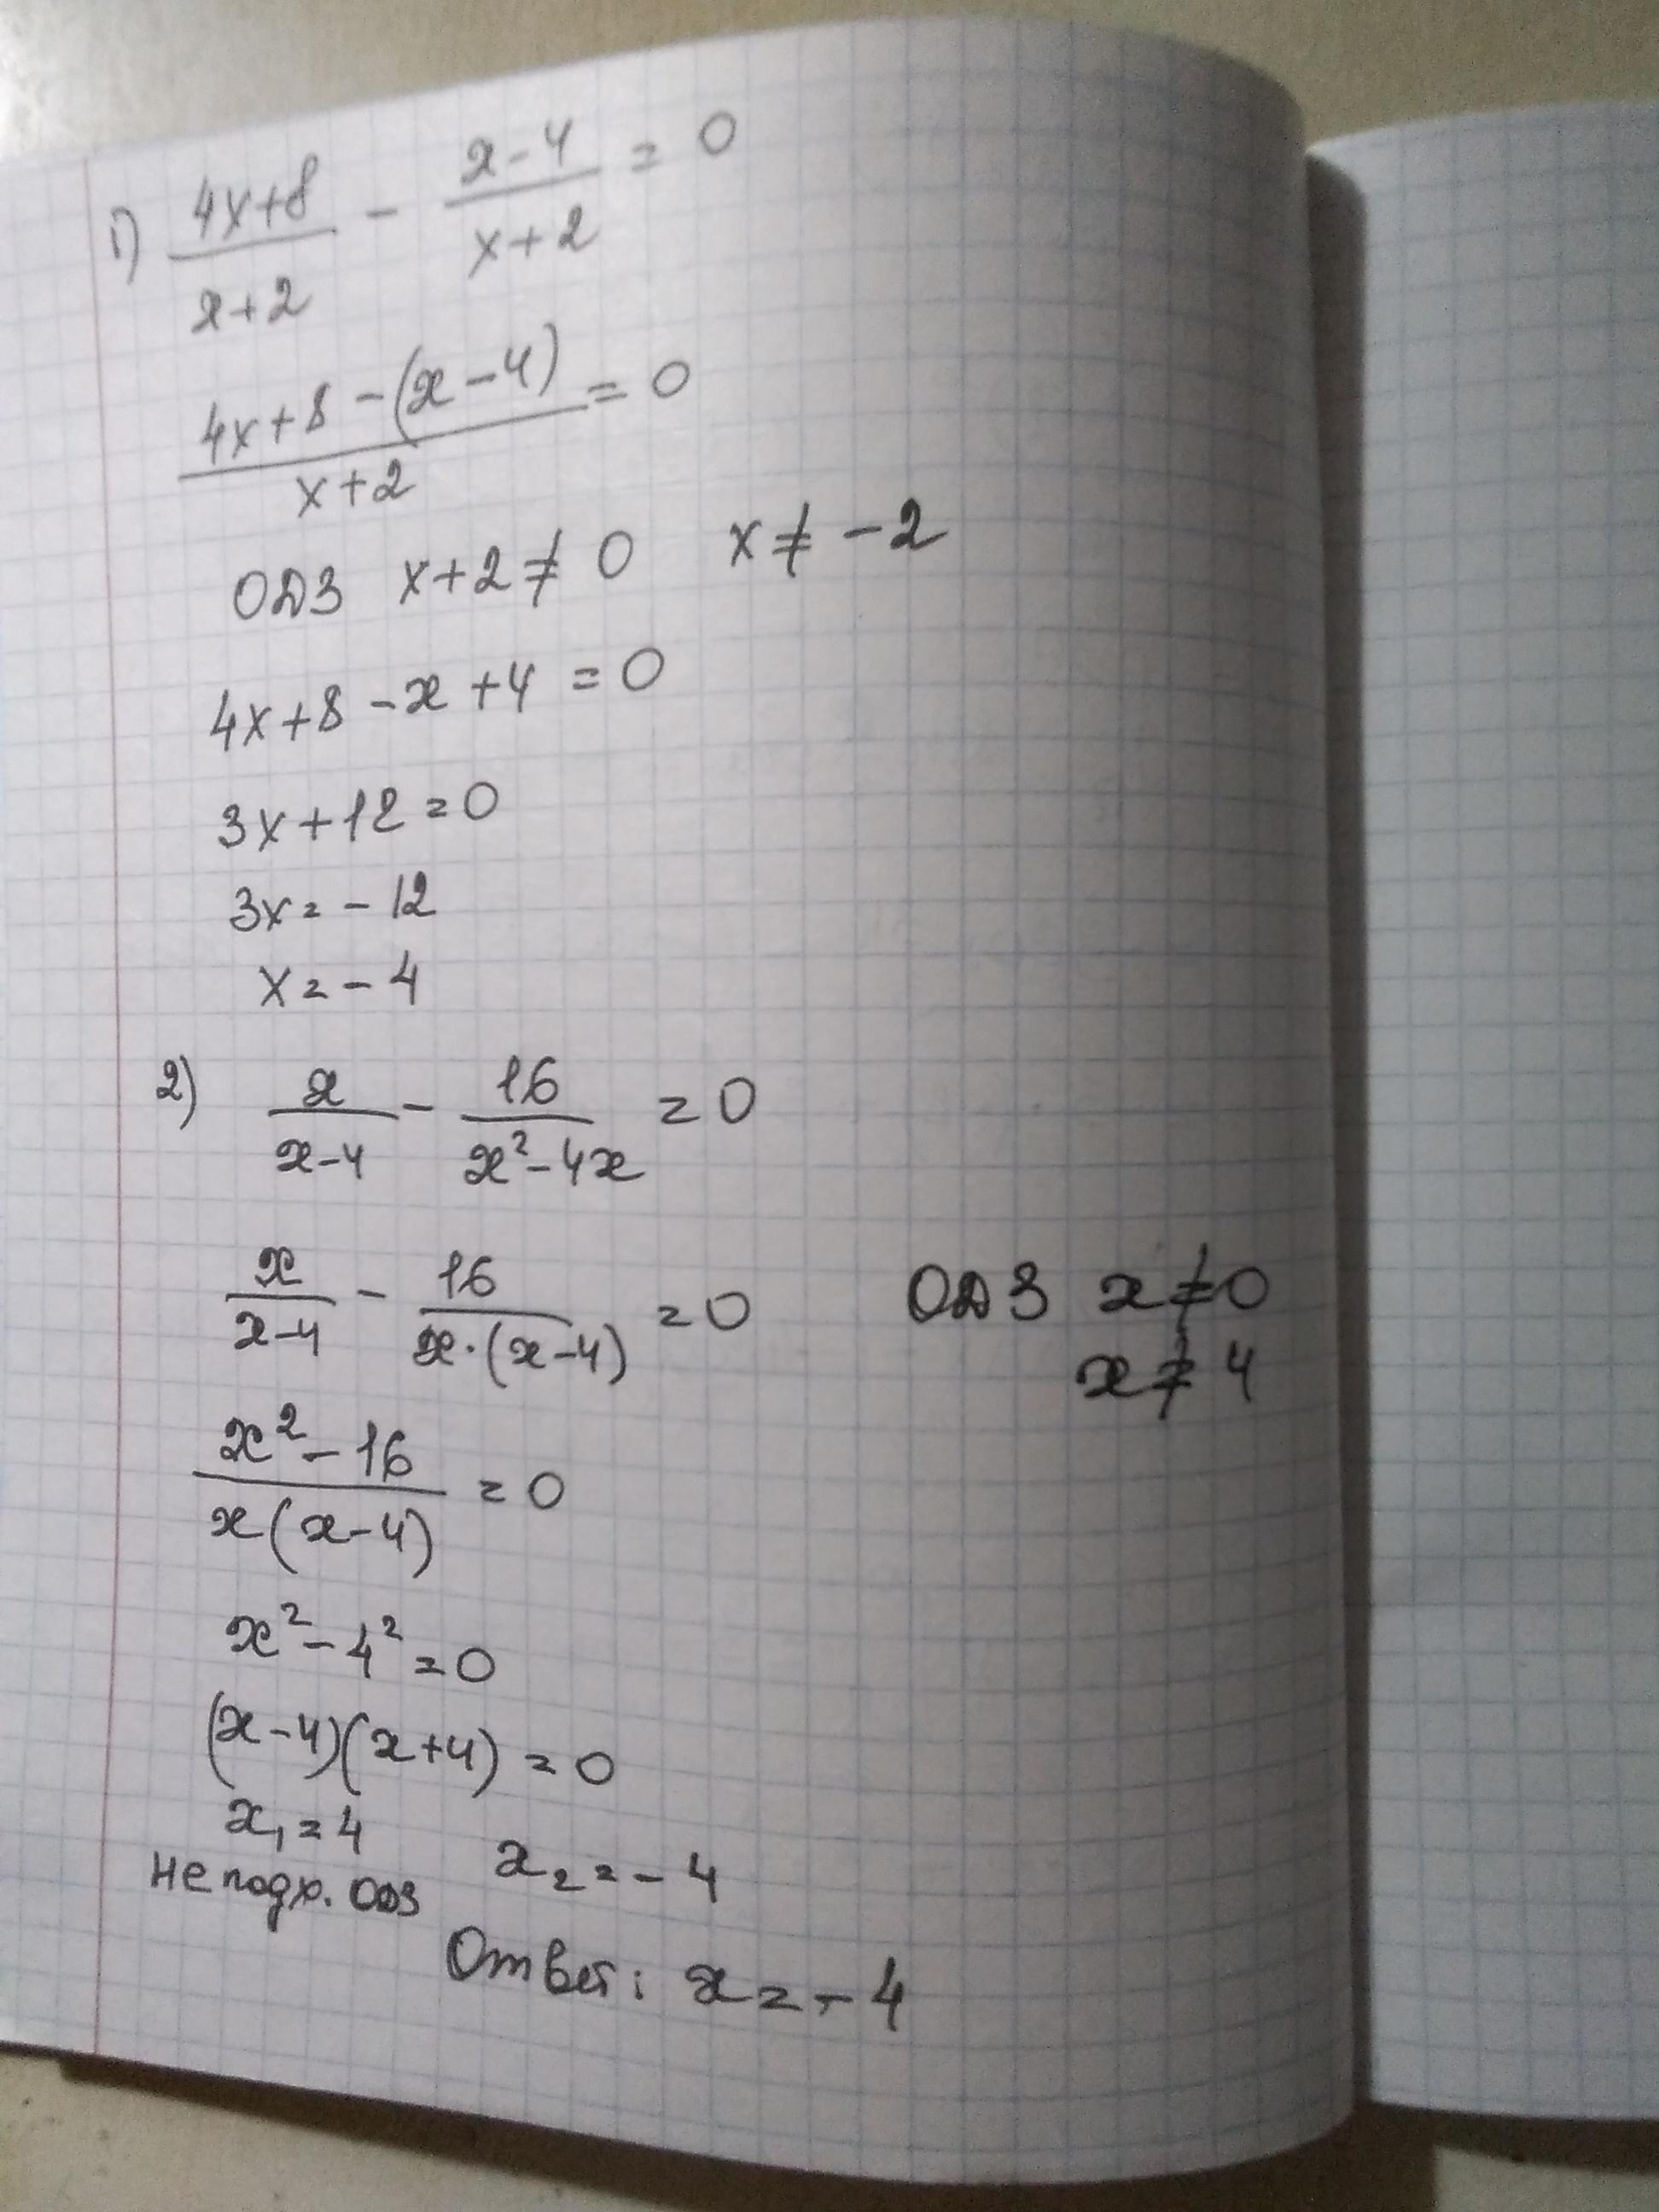 1) (4x+8)/(x+2) - (x-4)/(x+2) = 0
(4x+8-(x-4))/(x+2) = 0
ОДЗ x+2≠0 x≠-2
4x+8-x+4=0
3x+12=0
3x=-12
x=-4
2) x/(x-4) - 16/(x²-4x) = 0
x/(x-4) - 16/(x·(x-4)) = 0 ОДЗ x≠0
x≠4
(x²-16)/(x(x-4)) = 0
x²-4²=0
(x-4)(x+4)=0
x₁=4 x₂=-4
не подх. ОДЗ
Ответ: x=-4